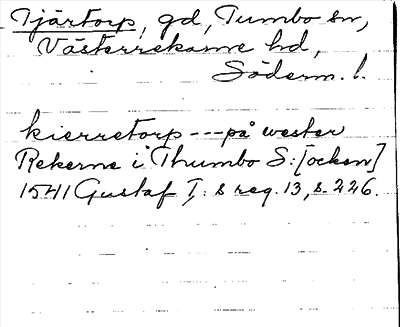 Tjärtorp, gd, Tumbo sn,
Västerrekarne hd,
Söderm. l.
kierretorp --- på wester
Rekerne i Thumbo S:[ocken]
1541 Gustaf I: s reg. 13, s. 226.